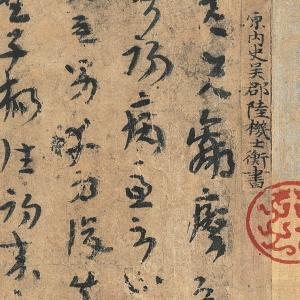 原內史吳郡陸機士衡書
先羸瘵
初病慮不
唯男幸為復失
子楊往初來